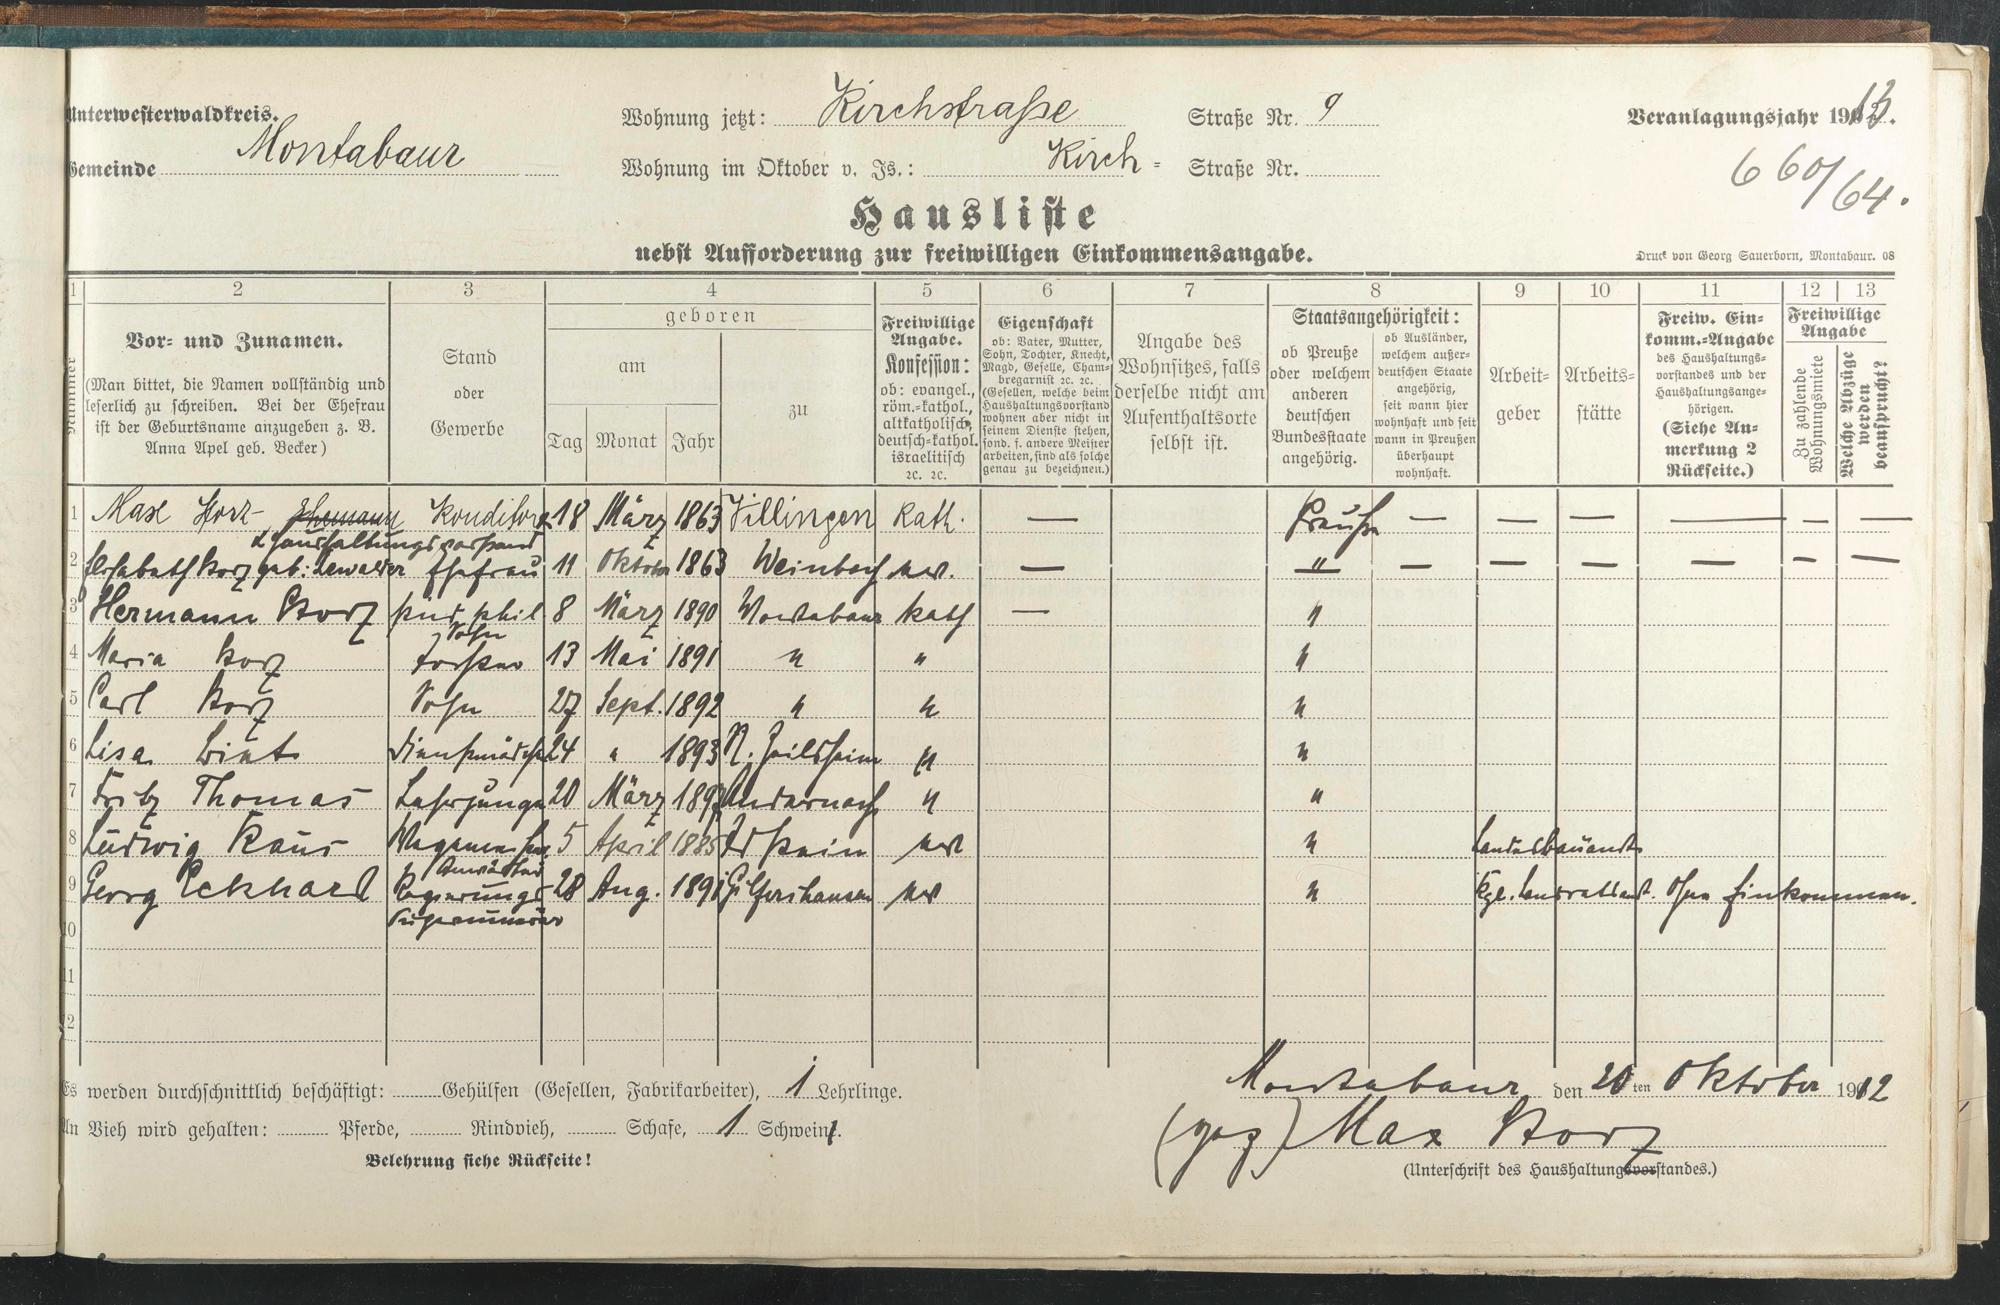 Unterwesterwaldkreis.
Gemeinde Montabaur
Wohnung jetzt: Kirchstraße Straße Nr. 9
Wohnung im Oktober v. Js.: Kirch- Straße Nr.
Veranlagungsjahr 1913.
660/64.
Hausliste
nebst Aufforderung zur freiwilligen Einkommensangabe.
Druck von Georg Sauerborn, Montabaur. 08
1 2 3 4 5 6 7 8 9 10 11 12 13
Nummer
Vor- und Zunamen.
(Man bittet, die Namen vollständig und
leserlich zu schreiben. Bei der Ehefrau
ist der Geburtsname anzugeben z. B.
Anna Apel geb. Becker)
Stand
oder
Gewerbe
geboren
am
Tag Monat Jahr
zu
Freiwillige
Angabe.
Konfession:
ob: evangel.,
röm.-kathol.,
altkatholisch,
deutsch-kathol.
israelitisch
ꝛc. ꝛc.
Eigenschaft
ob: Vater, Mutter,
Sohn, Tochter, Knecht,
Magd, Geselle, Cham-
bregarnist ꝛc. ꝛc.
(Gesellen, welche beim
Haushaltungsvorstand
wohnen aber nicht in
seinem Dienste stehen,
sond. f. andere Meister
arbeiten, sind als solche
genau zu bezeichnen.)
Angabe des
Wohnsitzes, falls
derselbe nicht am
Aufenthaltsorte
selbst ist.
Staatsangehörigkeit:
ob Preuße
oder welchem
anderen
deutschen
Bundesstaate
angehörig.
ob Ausländer,
welchem außer-
deutschen Staate
angehörig,
seit wann hier
wohnhaft und seit
wann in Preußen
überhaupt
wohnhaft.
Arbeit-
geber
Arbeits-
stätte
Freiw. Ein-
komm.-Angabe
des Haushaltungs-
vorstandes und der
Haushaltungsange-
hörigen.
(Siehe An-
merkung 2
Rückseite.)
Freiwillige
Angabe
Zu zahlende
Wohnungsmiete
Welche Abzüge
werden
beansprucht?
1 Max Storz Ehemann Konditor 18 März 1863 Villingen Kath. — Preuße — — — — — —
Haushaltungsvorstand
2 Elisabeth Storz geb: Ehefrau 11 Oktober 1863 Weinbach ev. — " — — — — — —
3 Hermann Storz stud phil 8 März 1890 Montabaur kath — "
Sohn
4 Maria Storz Tochter 13 Mai 1891 " " "
5 Carl Storz Sohn 27 Sept. 1892 " " "
6 Lisa Dienstmädchen 24 " 1893 N. Zeilsheim " "
7 Fritz Thomas Lehrjunge 20 März 1897 Andernach " "
8 Ludwig Kaus 5 April 1885 Idstein ev "  Landesbauamt
Anwärter
9 Georg Eckhard Regierungs 28 Aug. 1891 Gilfershausen ev " Kgl. Landratsamt. Ohne Einkommen.
Supernumerar
10
11
12
Es werden durchschnittlich beschäftigt: Gehülfen (Gesellen, Fabrikarbeiter), 1 Lehrlinge.
An Vieh wird gehalten: Pferde, Rindvieh, Schafe, 1 Schwein.
Belehrung siehe Rückseite!
Montabaur den 20ten Oktober 1912
(gez) Max Storz
(Unterschrift des Haushaltungsvorstandes.)